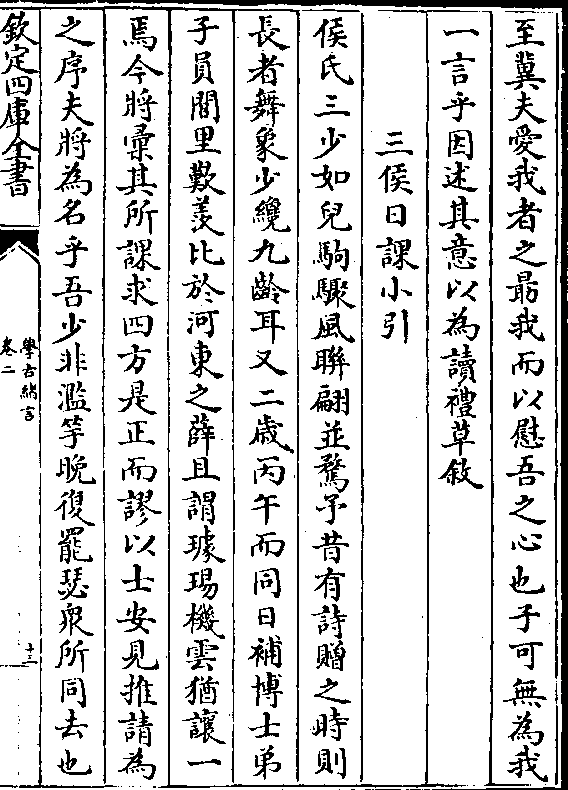 至冀夫愛我者之勗我而以慰吾之心也子可無為我
一言乎因述其意以為讀禮草敘
三侯日課小引
侯氏三少如兒駒驟風聯翩並騖予昔有詩贈之時則
長者舞象少纔九齡耳又二歲丙午而同日補博士弟
子員閭里歎羨比於河東之薛且謂璩瑒機雲猶讓一
焉今將彙其所課求四方是正而謬以士安見推請為
之序夫將為名乎吾少非濫竽晚復罷瑟衆所同去也
欽定四庫全書
學古緒言
卷二
十三